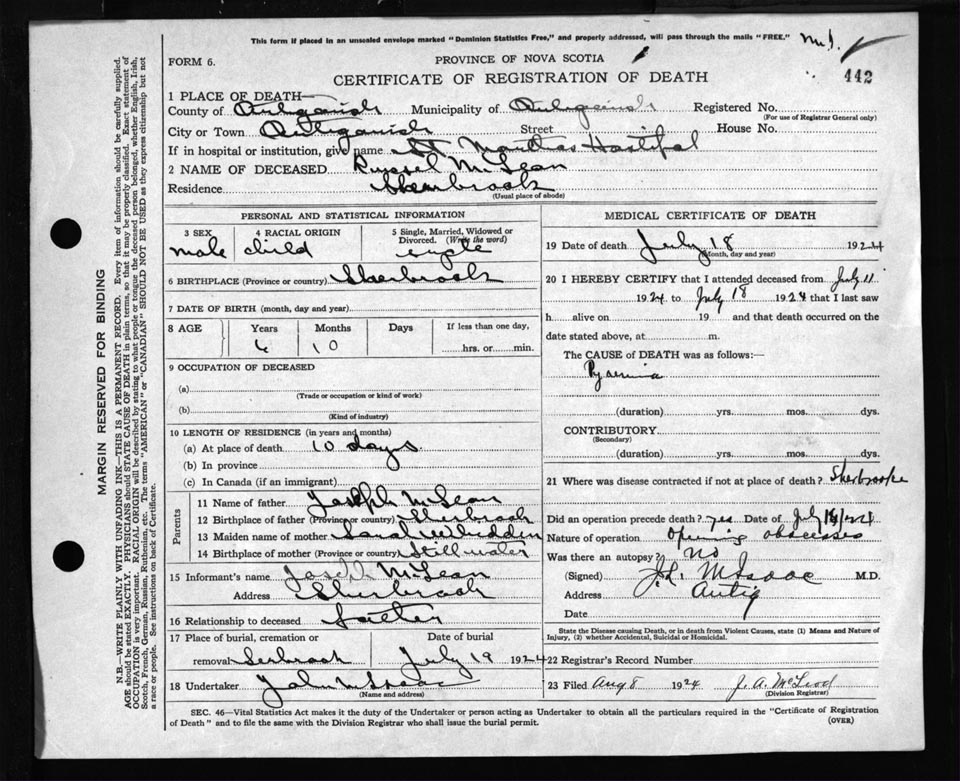 This form if placed in an unsealed envelope marked "Dominion Statistics Free," and properly addressed, will pass through the mails "FREE."
FORM 6.
PROVINCE OF NOVA SCOTIA
CERTIFICATE OF REGISTRATION OF DEATH
442
1 PLACE OF DEATH—
County of Antiganish Municipality of Antiganish Registered No.
(For use of Registrar General only)
City or Town Antiganish Street House No.
If in hospital or institution, give name St Marthas Hostipal
2 NAME OF DECEASED Russel McLean
Residence Sherbrook
(Usual place of abode)
PERSONAL AND STATISTICAL INFORMATION
3 SEX 4 RACIAL ORIGIN 5 Single, Married, Widowed or Divorced. (Write the word)
male child single
6 BIRTHPLACE (Province or country) Sherbrook
7 DATE OF BIRTH (month, day and year)
8 AGE Years Months Days If less than one day,
6 10 hrs. or min.
9 OCCUPATION OF DECEASED
(a)
(Trade or occupation or kind of work)
(b)
(Kind of industry)
10 LENGTH OF RESIDENCE (in years and months)
(a) At place of death 10 days
(b) In province
(c) In Canada (if an immigrant)
Parents
11 Name of father Joseph McLean
12 Birthplace of father (Province or country) Sherbrook
13 Maiden name of mother Sarah Whidden
14 Birthplace of mother (Province or country) Stillwater
15 Informant's name Joseph McLean
Address Sherbrook
16 Relationship to deceased father
17 Place of burial, cremation or Date of burial
removal Serbrook July 19 1924
18 Undertaker John McIsaac
(Name and address)
MEDICAL CERTIFICATE OF DEATH
19 Date of death July 18 1924
(Month, day and year)
20 I HEREBY CERTIFY that I attended deceased from July 11
1924 to July 18 1924 that I last saw
h alive on 19 and that death occurred on the
date stated above, at m.
The CAUSE of DEATH was as follows:—
Pyaemia
(duration) yrs. mos. dys.
CONTRIBUTORY
(Secondary)
(duration) yrs. mos. dys.
21 Where was disease contracted if not at place of death? Sherbrooke
Did an operation precede death? yes Date of July /24
Nature of operation Opening abscesses
Was there an autopsy? no
(Signed) J.L. McIsaac M.D.
Address Antig
Date
State the Disease causing Death, or in death from Violent Causes, state (1) Means and Nature of Injury, (2) whether Accidental, Suicidal or Homicidal.
22 Registrar's Record Number
23 Filed Aug 8 1924 J. A. McLeod
(Division Registrar)
SEC. 46—Vital Statistics Act makes it the duty of the Undertaker or person acting as Undertaker to obtain all the particulars required in the "Certificate of Registration
of Death" and to file the same with the Division Registrar who shall issue the burial permit.
(OVER)
MARGIN RESERVED FOR BINDING
N.B.—WRITE PLAINLY WITH UNFADING INK—THIS IS A PERMANENT RECORD. Every item of information should be carefully supplied.
AGE should be stated EXACTLY. PHYSICIANS should STATE CAUSE OF DEATH in plain terms, so that it may be properly classified. Exact statement of
OCCUPATION is very important. RACIAL ORIGIN will be described by stating to what people or tongue the deceased person belonged, whether English, Irish,
Scotch, French, German, Russian, Ruthenian, etc. The terms "AMERICAN" or "CANADIAN" SHOULD NOT BE USED as they express citizenship but not
a race or people. See instructions on back of Certificate.